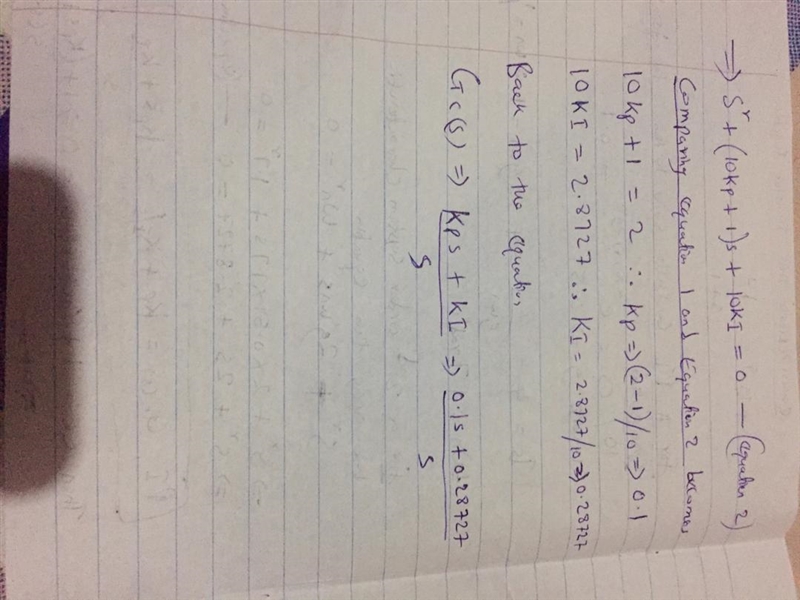 => S² + (10Kp + 1)s + 10KI = 0 — (equation 2)
Comparing equation 1 and Equation 2 becomes
10Kp + 1 = 2 ∴ Kp => (2-1)/10 => 0.1
10KI = 2.8727 ∴ KI = 2.8727/10 => 0.28727
Back to the equation
Gc(s) => Kps + KI => 0.1s + 0.28727
S S